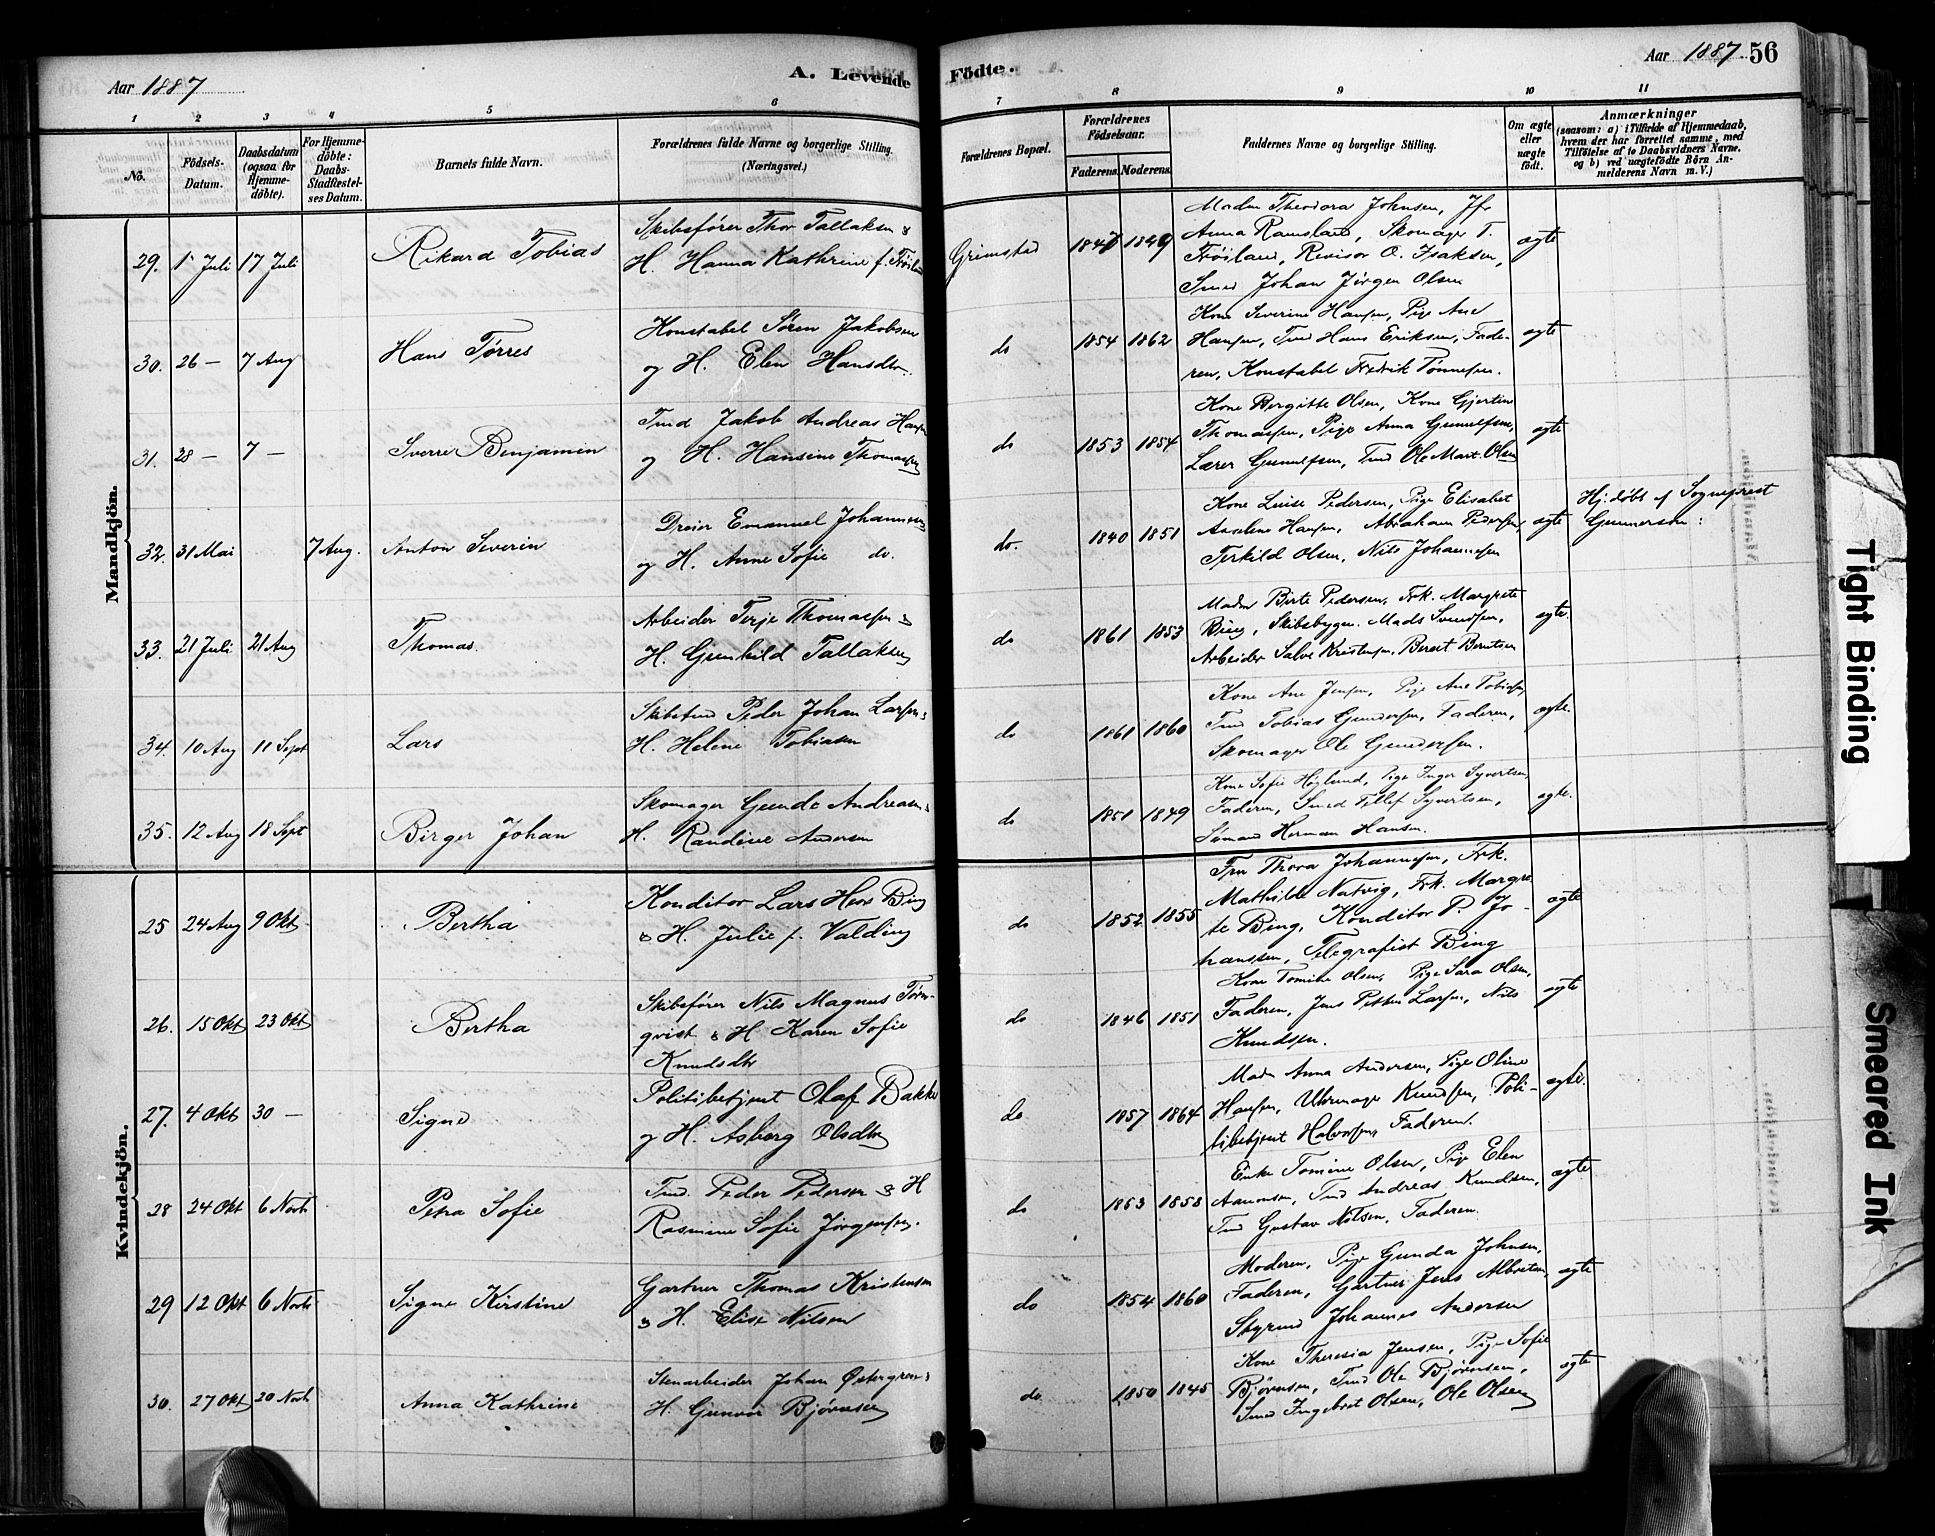 Aar 1887
A. Levende
Födte.
Aar 1887 56
1 2 3 4 5 6 7 8 9 10 11
No.
Födsels-Datum.
Daabsdatum (ogsaa for Hjemmedöbte).
For Hjemmedöbte: Daabs-Stadfæstelses Datum.
Barnets fulde Navn.
Forældrenes fulde Navne og borgerlige Stilling. (Næringsvei.)
Forældrenes Bopæl.
Forældrenes Födselsaar.
Faderens. Moderens.
Faddernes Navne og borgerlige Stilling.
Om ægte eller uægte födt.
Anmærkninger
(saasom: a) i Tilfælde af Hjemmedaab, hvem der har forrettet samme, med Tilföielse af to Daabsvidners Navne, og b) ved uægtefödte Börn Anmelderens Navn m. V.)
Mandkjön.
29. 1 Juli 17 Juli Rikard Tobias
Skibsfører Thor Tallaksen &
H. Hanna Kathrine f. Frøiland
Grimstad 1847 1849
Madm Theodora Johnsen, Jfr
Anna Ramsland, Skomager T.
Frøiland, Revisor O. Isaksen,
Smed Johan Jørgen Olsen
ægte
30. 26 – 7 Aug Hans Tørres
Konstabel Søren Jakobsen
og H. Elen Hansdtr.
do 1854 1862
Kone Severine Hansen, Pige Ane
Hansen, Tmd Hans Eriksen, Fade-
ren, Konstabel Fredrik Tønnesen.
ægte
31. 28 – 7 – Sverre Benjamin
Tmd Jakob Andreas Hansen
og H. Hansine Thomassen
do 1853 1854
Kone Bergitte Olsen, Kone Gjertine
Thomassen, Pige Anna Gunulfsen,
Lærer Gunulfsen, Tmd Ole Mart. Olsen
ægte
32. 31 Mai 7 Aug. Anton Severin
Dreier Emanuel Johannesen
og H. Anne Sofie do.
do. 1840 1851
Kone Luise Pedersen, Pige Elisabet
Anseline Hansen, Abraham Pedersen,
Terkild Olsen, Nils Johannesen
ægte
Hj. døbt af Sogneprest
Gunnersen:
33. 21 Juli 21 Aug Thomas.
Arbeider Terje Thomassen &
H. Gunhild Tallaksen
do 1861 1853
Madm Birte Pedersen, Frk. Margrete
Bing, Skibsbygm. Mads Svendsen,
Arbeider Salve Kristensen, Berent Berntsen
ægte.
34. 10 Aug 11 Sept Lars
Skibstmd Peder Johan Larsen &
H. Helene Tobiasen
do 1861 1860
Kone Ane Jensen, Pige Ane Tobiasen,
Tmd Tobias Gundersen, Faderen,
Skomager Ole Gundersen.
ægte.
35. 12 Aug 18 Sept Birger Johan
Skomager Gunde Andreasen &
H. Randine Andersen
do 1851 1849
Kone Sofie Høglund, Pige Inger Syvertsen,
Faderen, Smed Tellef Syvertsen,
Sømand Herman Hansen.
ægte.
Kvindekjön.
25 24 Aug 9 Okt Bertha
Konditor Lars Bing
& H. Julie f. Valding
do 1852 1855
Fru Thora Johannesen, Frk.
Mathilde Natvig, Frk. Margre-
te Bing, Konditor P. Jo-
hanssen, Telegrafist Bing
ægte
26. 15 Okt 23 Okt Bertha
Skibsfører Nils Magnus Tørn-
qvist & H Karen Sofie
Knudsdtr
do 1846 1851
Kone Tomine Olsen, Pige Sara Olsen,
Faderen, Jens Petter Larsen, Nils
Knudsen.
ægte
27. 4 Okt 30 – Signe
Politibetjent Olaf Bakke
og H. Asborg Olsdtr
do 1857 1864
Madm Anna Andersen, Pige Oline
Hansen, Uhrmager Knudsen, Poli-
tibetjent Halvorsen, Faderen.
ægte.
28 24 Okt 6 Novb Petra Sofie
Tmd. Peder Pedersen & H
Rasmine Sofie Jørgensen.
do 1853 1858
Enke Tomine Olsen, Pige Elen
Aanonsen, Tmd Andreas Knudsen,
Tmd Gustav Nilsen, Faderen.
ægte
29 12 Okt 6 Novb Signe Kirstine
Gartner Thomas Kristensen
& H. Elise Nilsen
do 1854 1860
Moderen, Pige Gunda Johnsen,
Faderen, Gartner Jens Albretsen,
Styrmd Johannes Andersen
ægte
30. 27 Okt 20 Novb Anna Kathrine
Stenarbeider Johan Østergren &
H. Gunvor Bjørnsen
do. 1850 1845
Kone Theresia Jensen, Pige Sofie
Bjørnsen, Tmd Ole Bjørnsen,
Smed Ingebret Olsen, Ole Olsen
ægte
Tight Binding
Smeared Ink